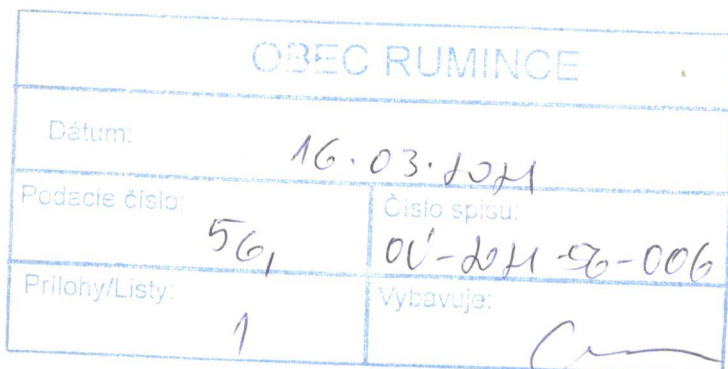 OBEC RUMINCE
Dátum:
16.03.2021
Podacie číslo:
56,
Číslo spisu:
OÚ-2021-56-006
Prílohy/Listy:
1
Vybavuje: